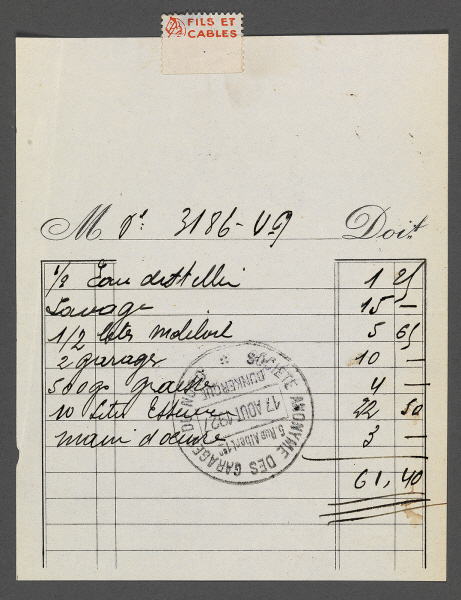 FILS ET
CABLES
M 3186-V9 Doit
1/2 Eau distillée 1 25
Lavage 15 —
1/2 Mobiloil 5 65
2 garages 10 —
500gs graisse 4 —
10 Litres Essence 22 50
main d'oeuvre 3 —
61,40
SOCIÉTÉ ANONYME DES GARAGES
DUNKERQUE
17 AOUT 1927
5 Rue Albert 1er